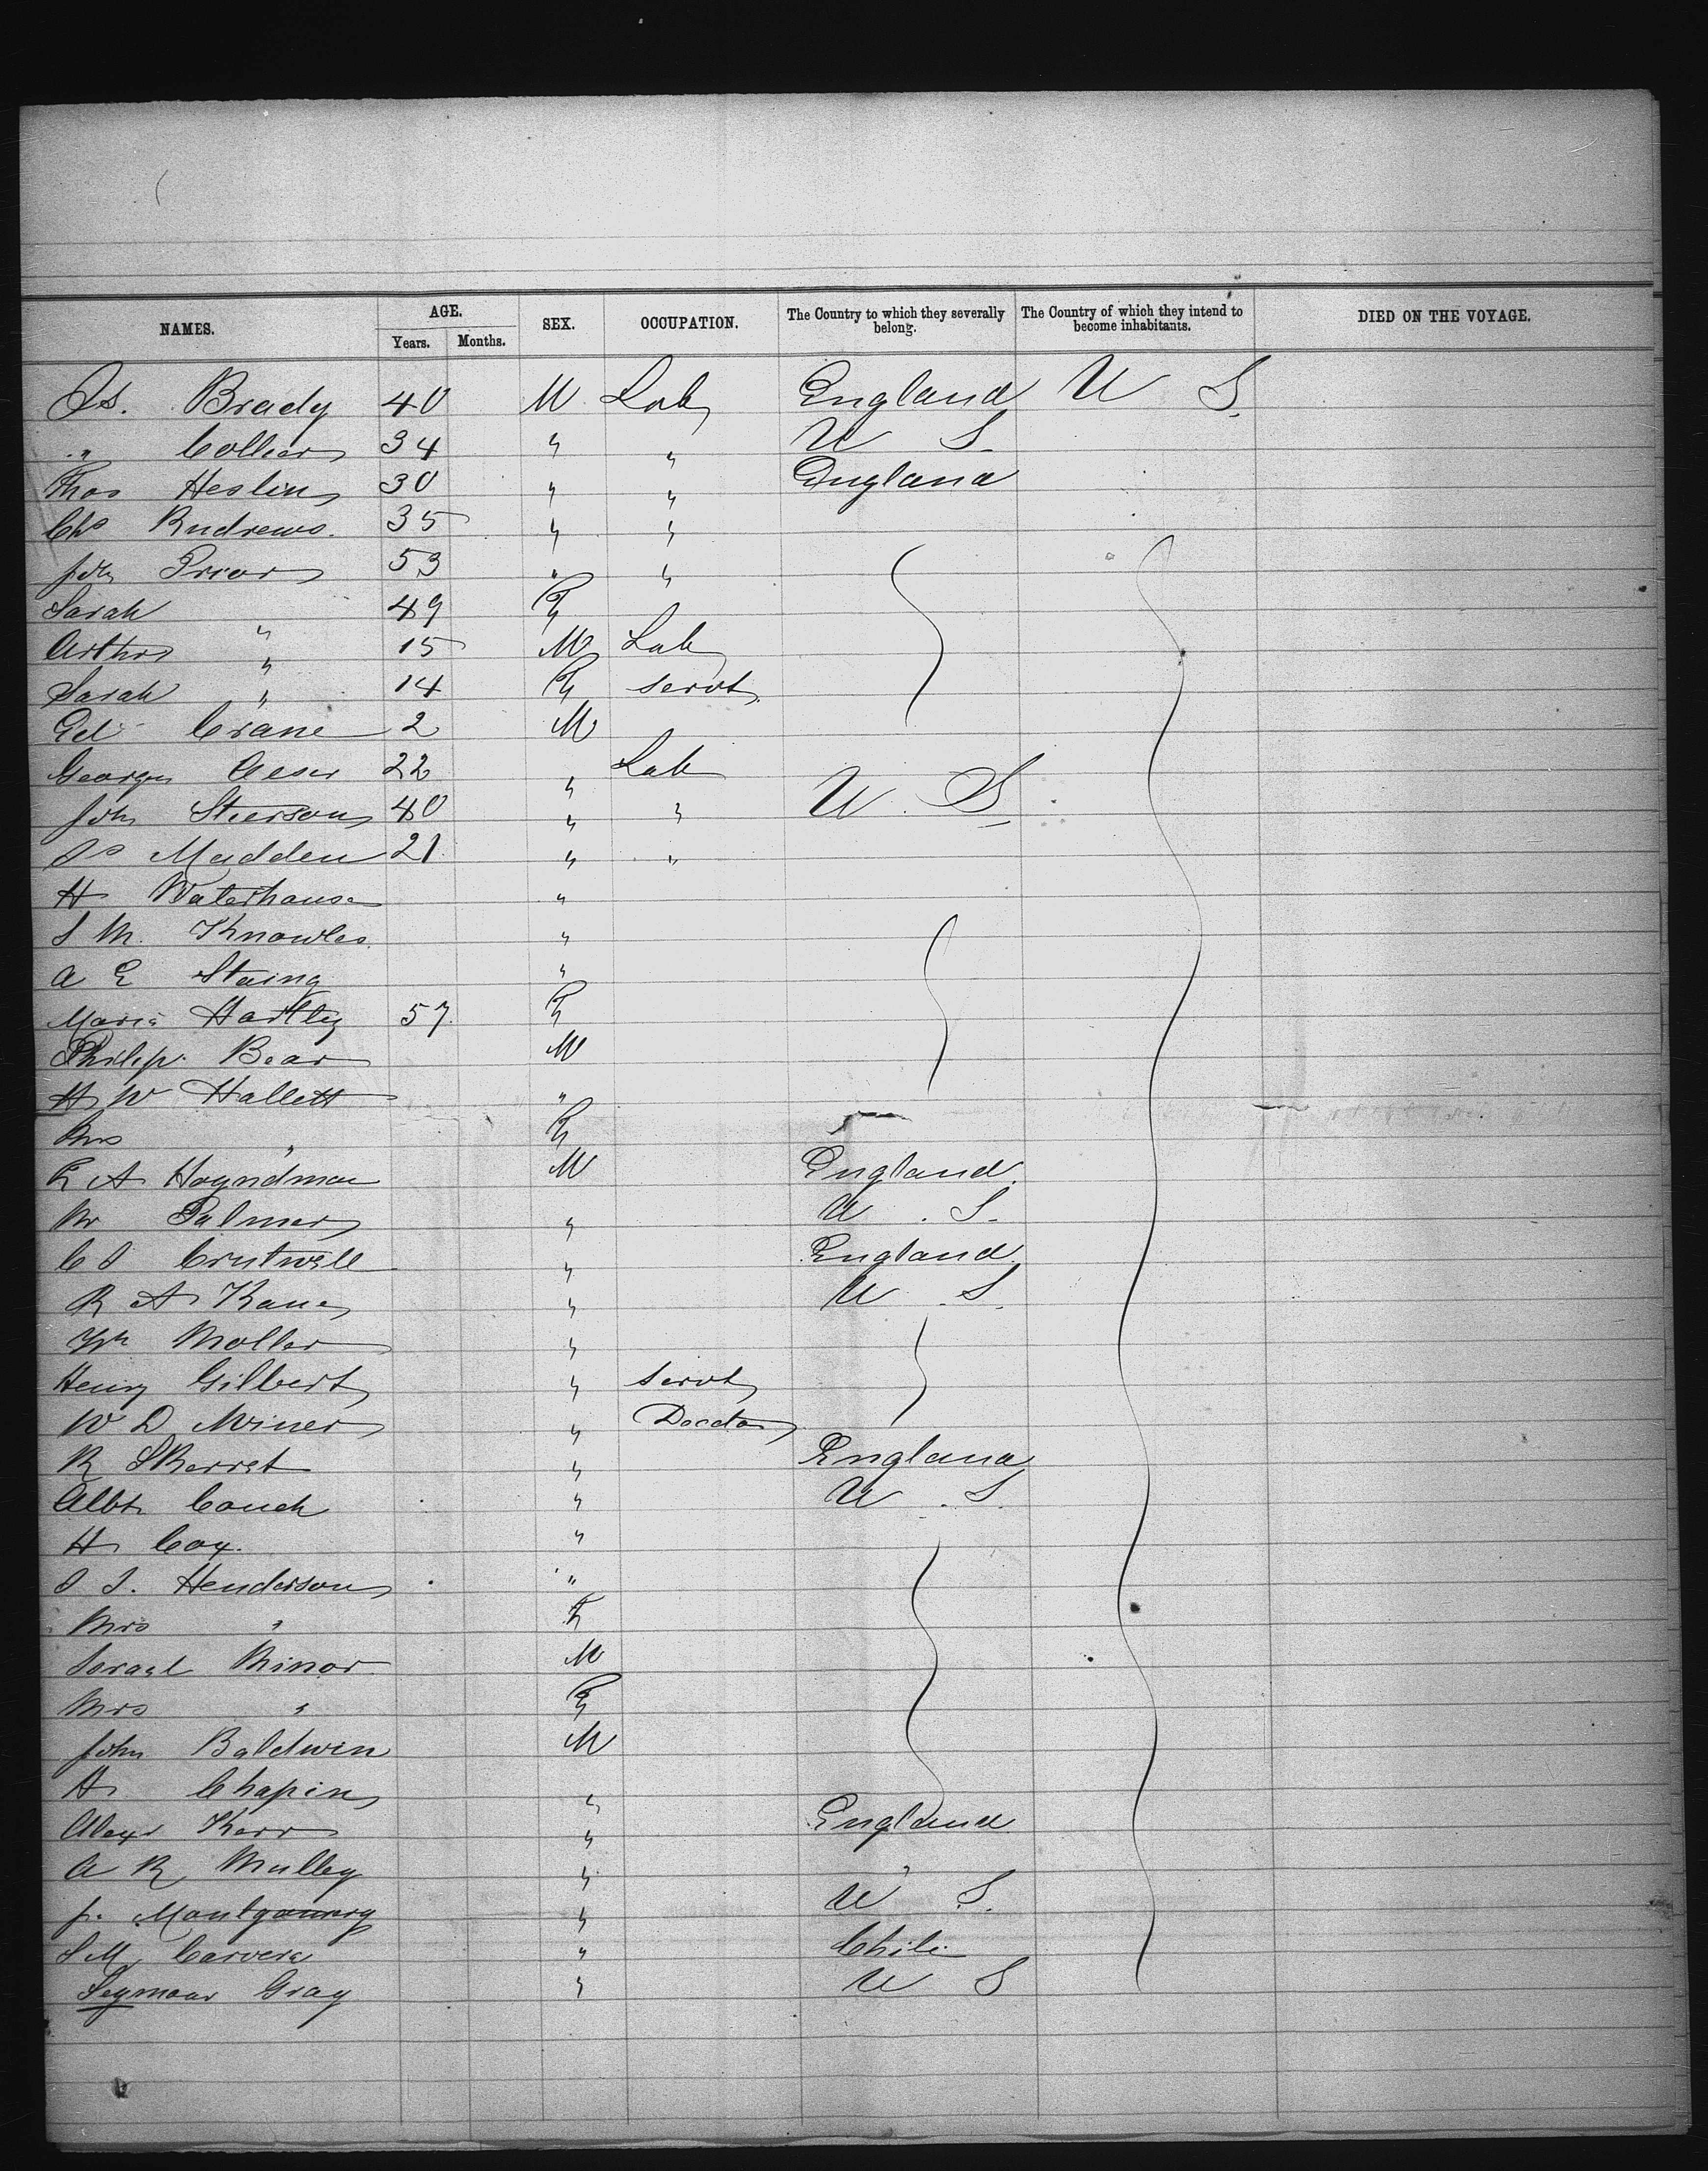 NAMES. AGE. Years. Months. SEX. OCCUPATION. The Country to which they severally belong. The Country of which they intend to become inhabitants. DIED ON THE VOYAGE.
Js. Brady 40 M Lab England U S.
" Collier 34 " " U S.
Thos Heslin 30 " " England
Chs Andrews. 35 " "
John Prior 53 " "
Sarah " 49 F
Arthur " 15 M Lab
Sarah " 14 F Servt
Ed Crane 2 M
George 22 " Lab
John 40 " " U S.
Js Madden 21 " "
H Waterhouse "
S M. Knowles "
A E Staing "
Maria Hartley 57 F
Philip Bear M
H W Hallett "
Mrs " F
F A Hoyndman M England
Mr Palmer " U S.
C S Crutwell " England
R A Kane " U S.
Wm Moller "
Henry Gilbert " Servt
W D Miner " Docctor
R Skerret " England
Albt Couch " U S.
H Cox. "
S J. Henderson "
Mrs " F
Israel Minor M
Mrs " F
John Baldwin M
H Chapin "
Alexr Kerr " England
A R Mulley " "
J. Montgomery " U S.
S M Carvera " Chili
Seymour Gray " U S